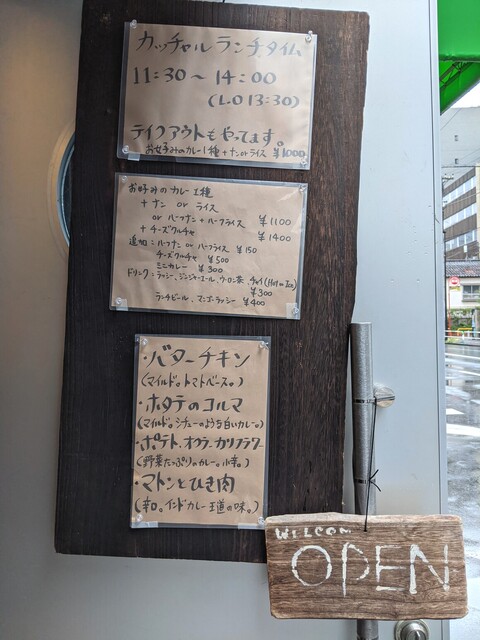 カッチャル ランチタイム
11:30～14:00
(L.O 13:30)
テイクアウトもやってます。
お好みのカレー1種+ナンorライス ¥1000
お好みのカレー1種
+ナン or ライス
or ハーフナン+ハーフライス ¥1100
+チーズクルチャ ¥1400
追加:ハーフナン or ハーフライス ¥150
チーズクルチャ ¥500
ミニカレー ¥300
ドリンク:ラッシー、ジンジャーエール、ウーロン茶、チャイ(Hot or Ice)
¥300
ランチビール、マンゴーラッシー ¥400
・バターチキン
(マイルド。トマトベース。)
・ホタテのコルマ
(マイルド。シチューのような白いカレー。)
・ポテト、オクラ、カリフラワー
(野菜たっぷりのカレー。小辛。)
・マトンとひき肉
(辛口。インドカレー王道の味。)
WELCOM
OPEN